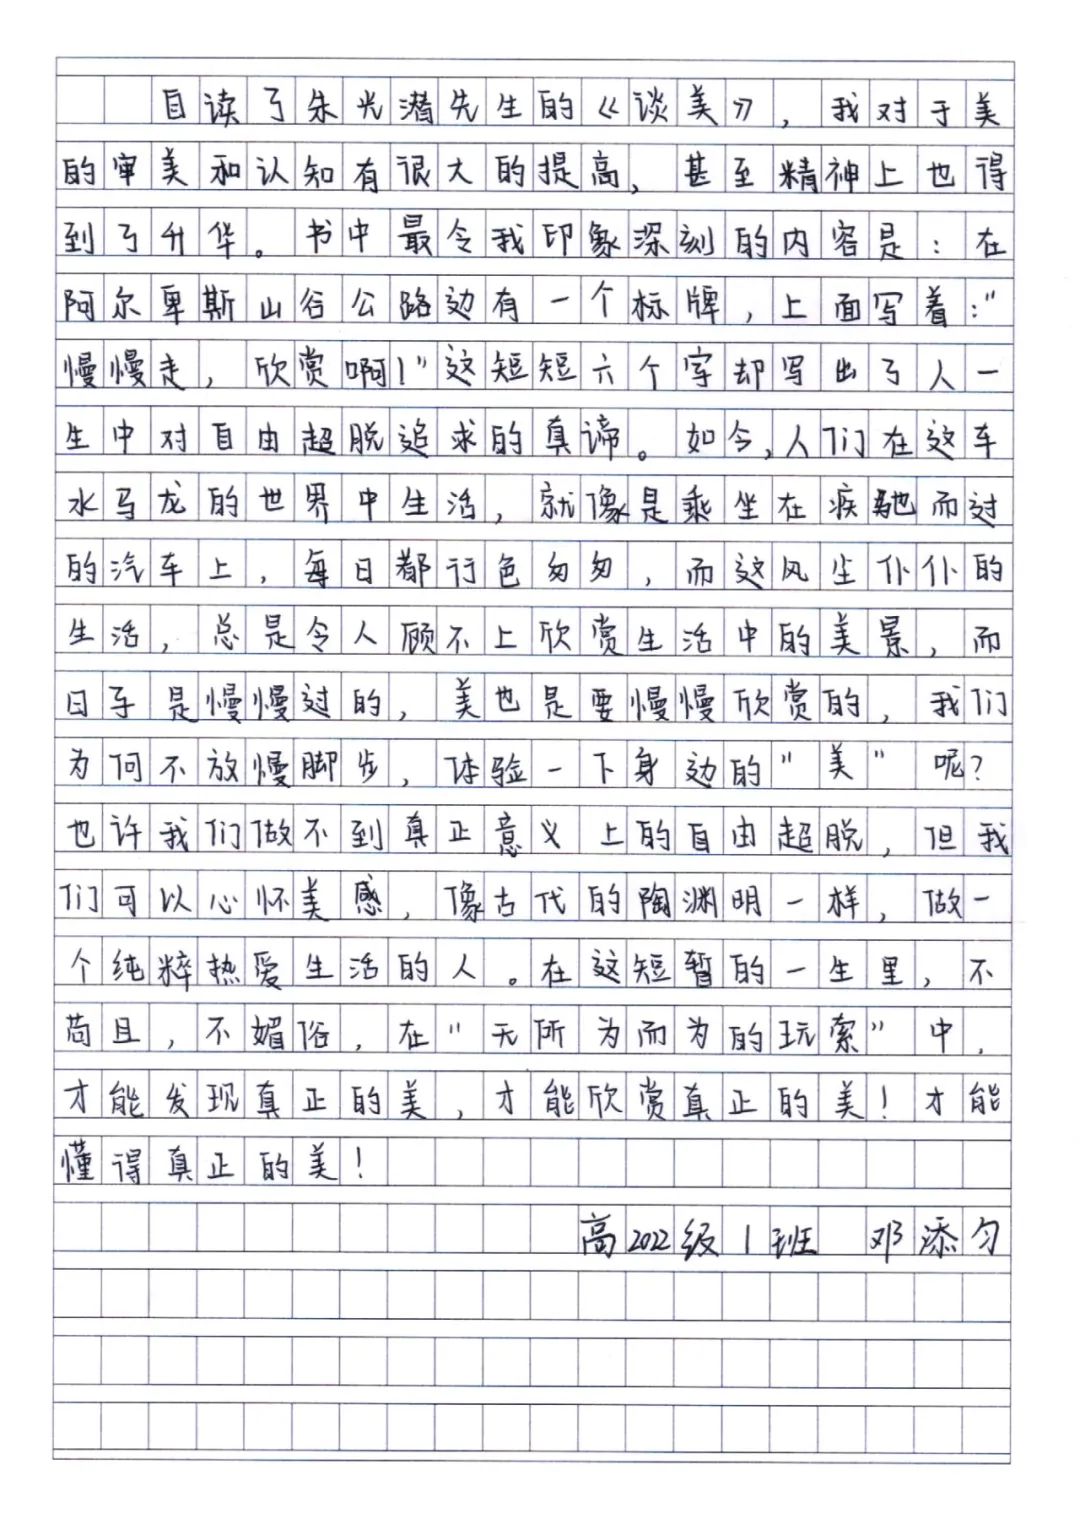 自读了朱光潜先生的《谈美》，我对于美
的审美和认知有很大的提高，甚至精神上也得
到了升华。书中最令我印象深刻的内容是：在
阿尔卑斯山谷公路边有一个标牌，上面写着："
慢慢走，欣赏啊！"这短短六个字却写出了人一
生中对自由超脱追求的真谛。如今，人们在这车
水马龙的世界中生活，就像是乘坐在疾驰而过
的汽车上，每日都行色匆匆，而这风尘仆仆的
生活，总是令人顾不上欣赏生活中的美景，而
日子是慢慢过的，美也是要慢慢欣赏的，我们
为何不放慢脚步，体验一下身边的"美"呢？
也许我们做不到真正意义上的自由超脱，但我
们可以心怀美感，像古代的陶渊明一样，做一
个纯粹热爱生活的人。在这短暂的一生里，不
苟且，不媚俗，在"无所为而为的玩索"中，
才能发现真正的美，才能欣赏真正的美！才能
懂得真正的美！
高2022级1班 邓添匀